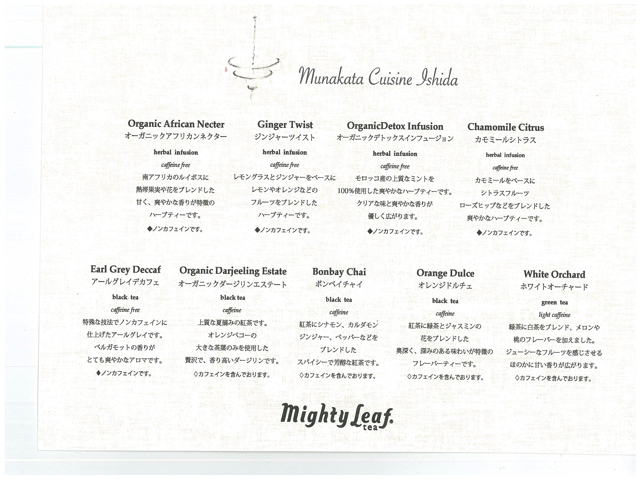 Munakata Cuisine Ishida
Organic African Necter
オーガニックアフリカンネクター
herbal infusion
caffeine free
南アフリカのルイボスに
熱帯果実や花をブレンドした
甘く、爽やかな香りが特徴の
ハーブティーです。
◆ノンカフェインです。
Ginger Twist
ジンジャーツイスト
herbal infusion
caffeine free
レモングラスとジンジャーをベースに
レモンやオレンジなどの
フルーツをブレンドした
ハーブティーです。
◆ノンカフェインです。
OrganicDetox Infusion
オーガニックデトックスインフュージョン
herbal infusion
caffeine free
モロッコ産の上質なミントを
100%使用した爽やかなハーブティーです。
クリアな味と爽やかな香りが
優しく広がります。
◆ノンカフェインです。
Chamomile Citrus
カモミールシトラス
herbal infusion
caffeine free
カモミールをベースに
シトラスフルーツ
ローズヒップなどをブレンドした
爽やかなハーブティーです。
◆ノンカフェインです。
Earl Grey Deccaf
アールグレイデカフェ
black tea
caffeine free
特殊な技法でノンカフェインに
仕上げたアールグレイです。
ベルガモットの香りが
とても爽やかなアロマです。
◆ノンカフェインです。
Organic Darjeeling Estate
オーガニックダージリンエステート
black tea
caffeine
上質な夏摘みの紅茶です。
オレンジペコーの
大きな茶葉のみを使用した
贅沢で、香り高いダージリンです。
◇カフェインを含んでおります。
Bonbay Chai
ボンベイチャイ
black tea
caffeine
紅茶にシナモン、カルダモン
ジンジャー、ペッパーなどを
ブレンドした
スパイシーで芳醇な紅茶です。
◇カフェインを含んでおります。
Orange Dulce
オレンジドルチェ
black tea
caffeine
紅茶に緑茶とジャスミンの
花をブレンドした
奥深く、深みのある味わいが特徴の
フレーバーティーです。
◇カフェインを含んでおります。
White Orchard
ホワイトオーチャード
green tea
light caffeine
緑茶に白茶をブレンド、メロンや
桃のフレーバーを加えました。
ジューシーなフルーツを感じさせる
ほのかに甘い香りが広がります。
◇カフェインを含んでおります。
Mighty Leaf.
tea